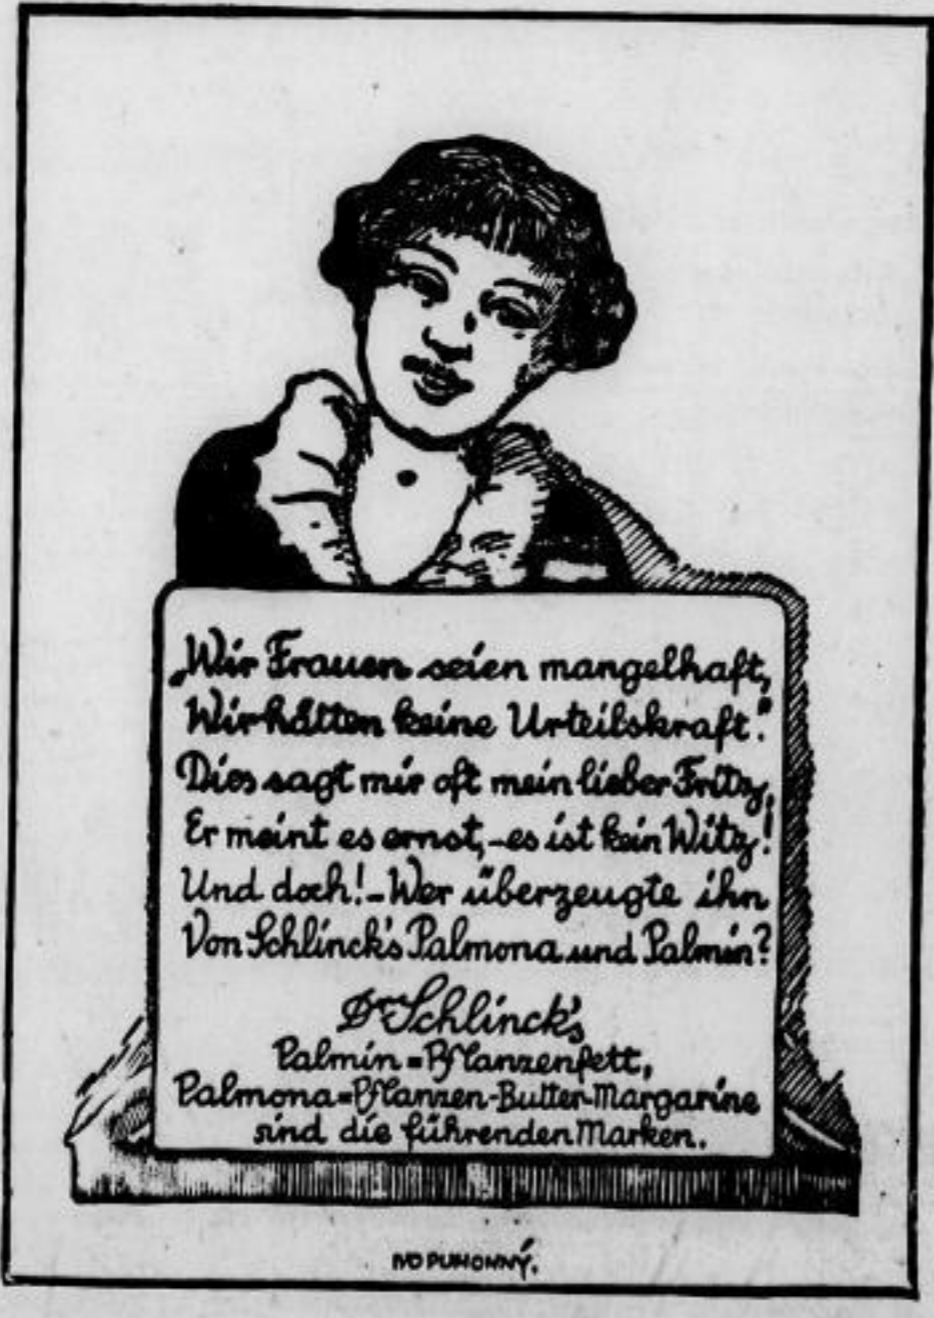 „Wir Frauen seien mangelhaft,
Wir hätten keine Urteilskraft."
Dies sagt mir oft mein lieber Fritz,
Er meint es ernst, – es ist kein Witz!
Und doch! – Wer überzeugte ihn
Von Schlinck's Palmona und Palmin?
Dr. Schlinck's
Palmin=Pflanzenfett,
Palmona=Pflanzen-Butter-Margarine
sind die führenden Marken.
IVO PUHONNÝ.